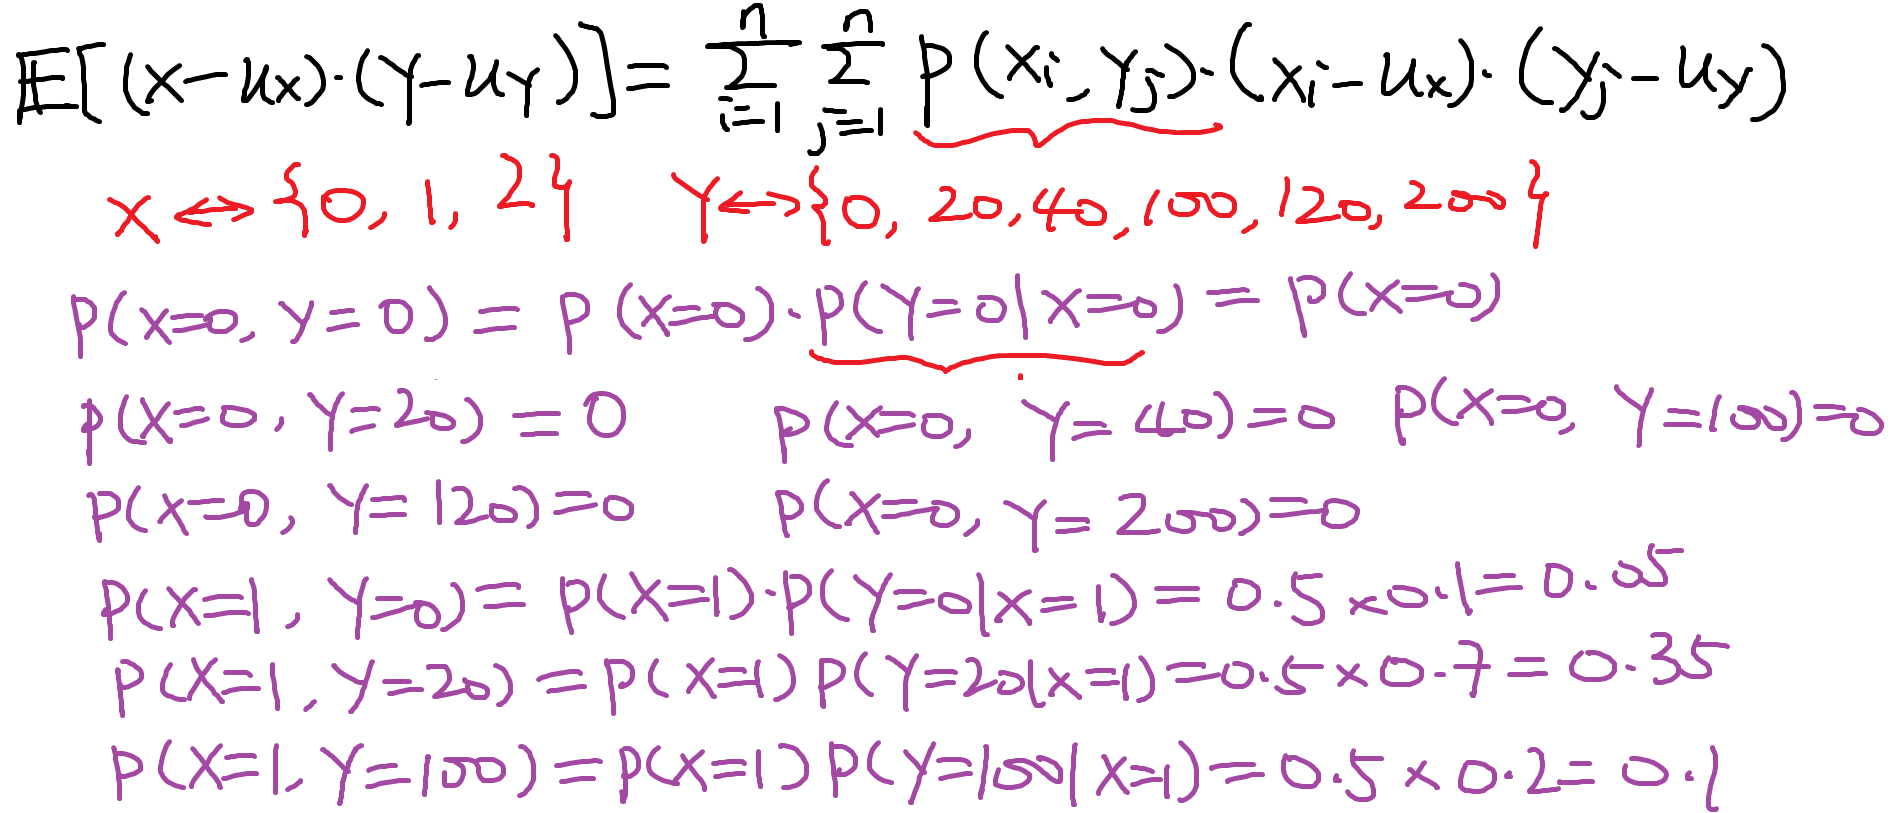 E[(X-ux)·(Y-uY)] = Σ_{i=1}^{n} Σ_{j=1}^{n} p(xi, yj)·(xi-ux)·(yj-uy)
X ↔ {0, 1, 2} Y ↔ {0, 20, 40, 100, 120, 200}
P(X=0, Y=0) = P(X=0)·P(Y=0|X=0) = P(X=0)
P(X=0, Y=20) = 0 P(X=0, Y=40)=0 P(X=0, Y=100)=0
P(X=0, Y=120)=0 P(X=0, Y=200)=0
P(X=1, Y=0) = P(X=1)·P(Y=0|X=1) = 0.5×0.1=0.05
P(X=1, Y=20) = P(X=1) P(Y=20|X=1)=0.5×0.7=0.35
P(X=1, Y=100) = P(X=1) P(Y=100|X=1)=0.5×0.2=0.1